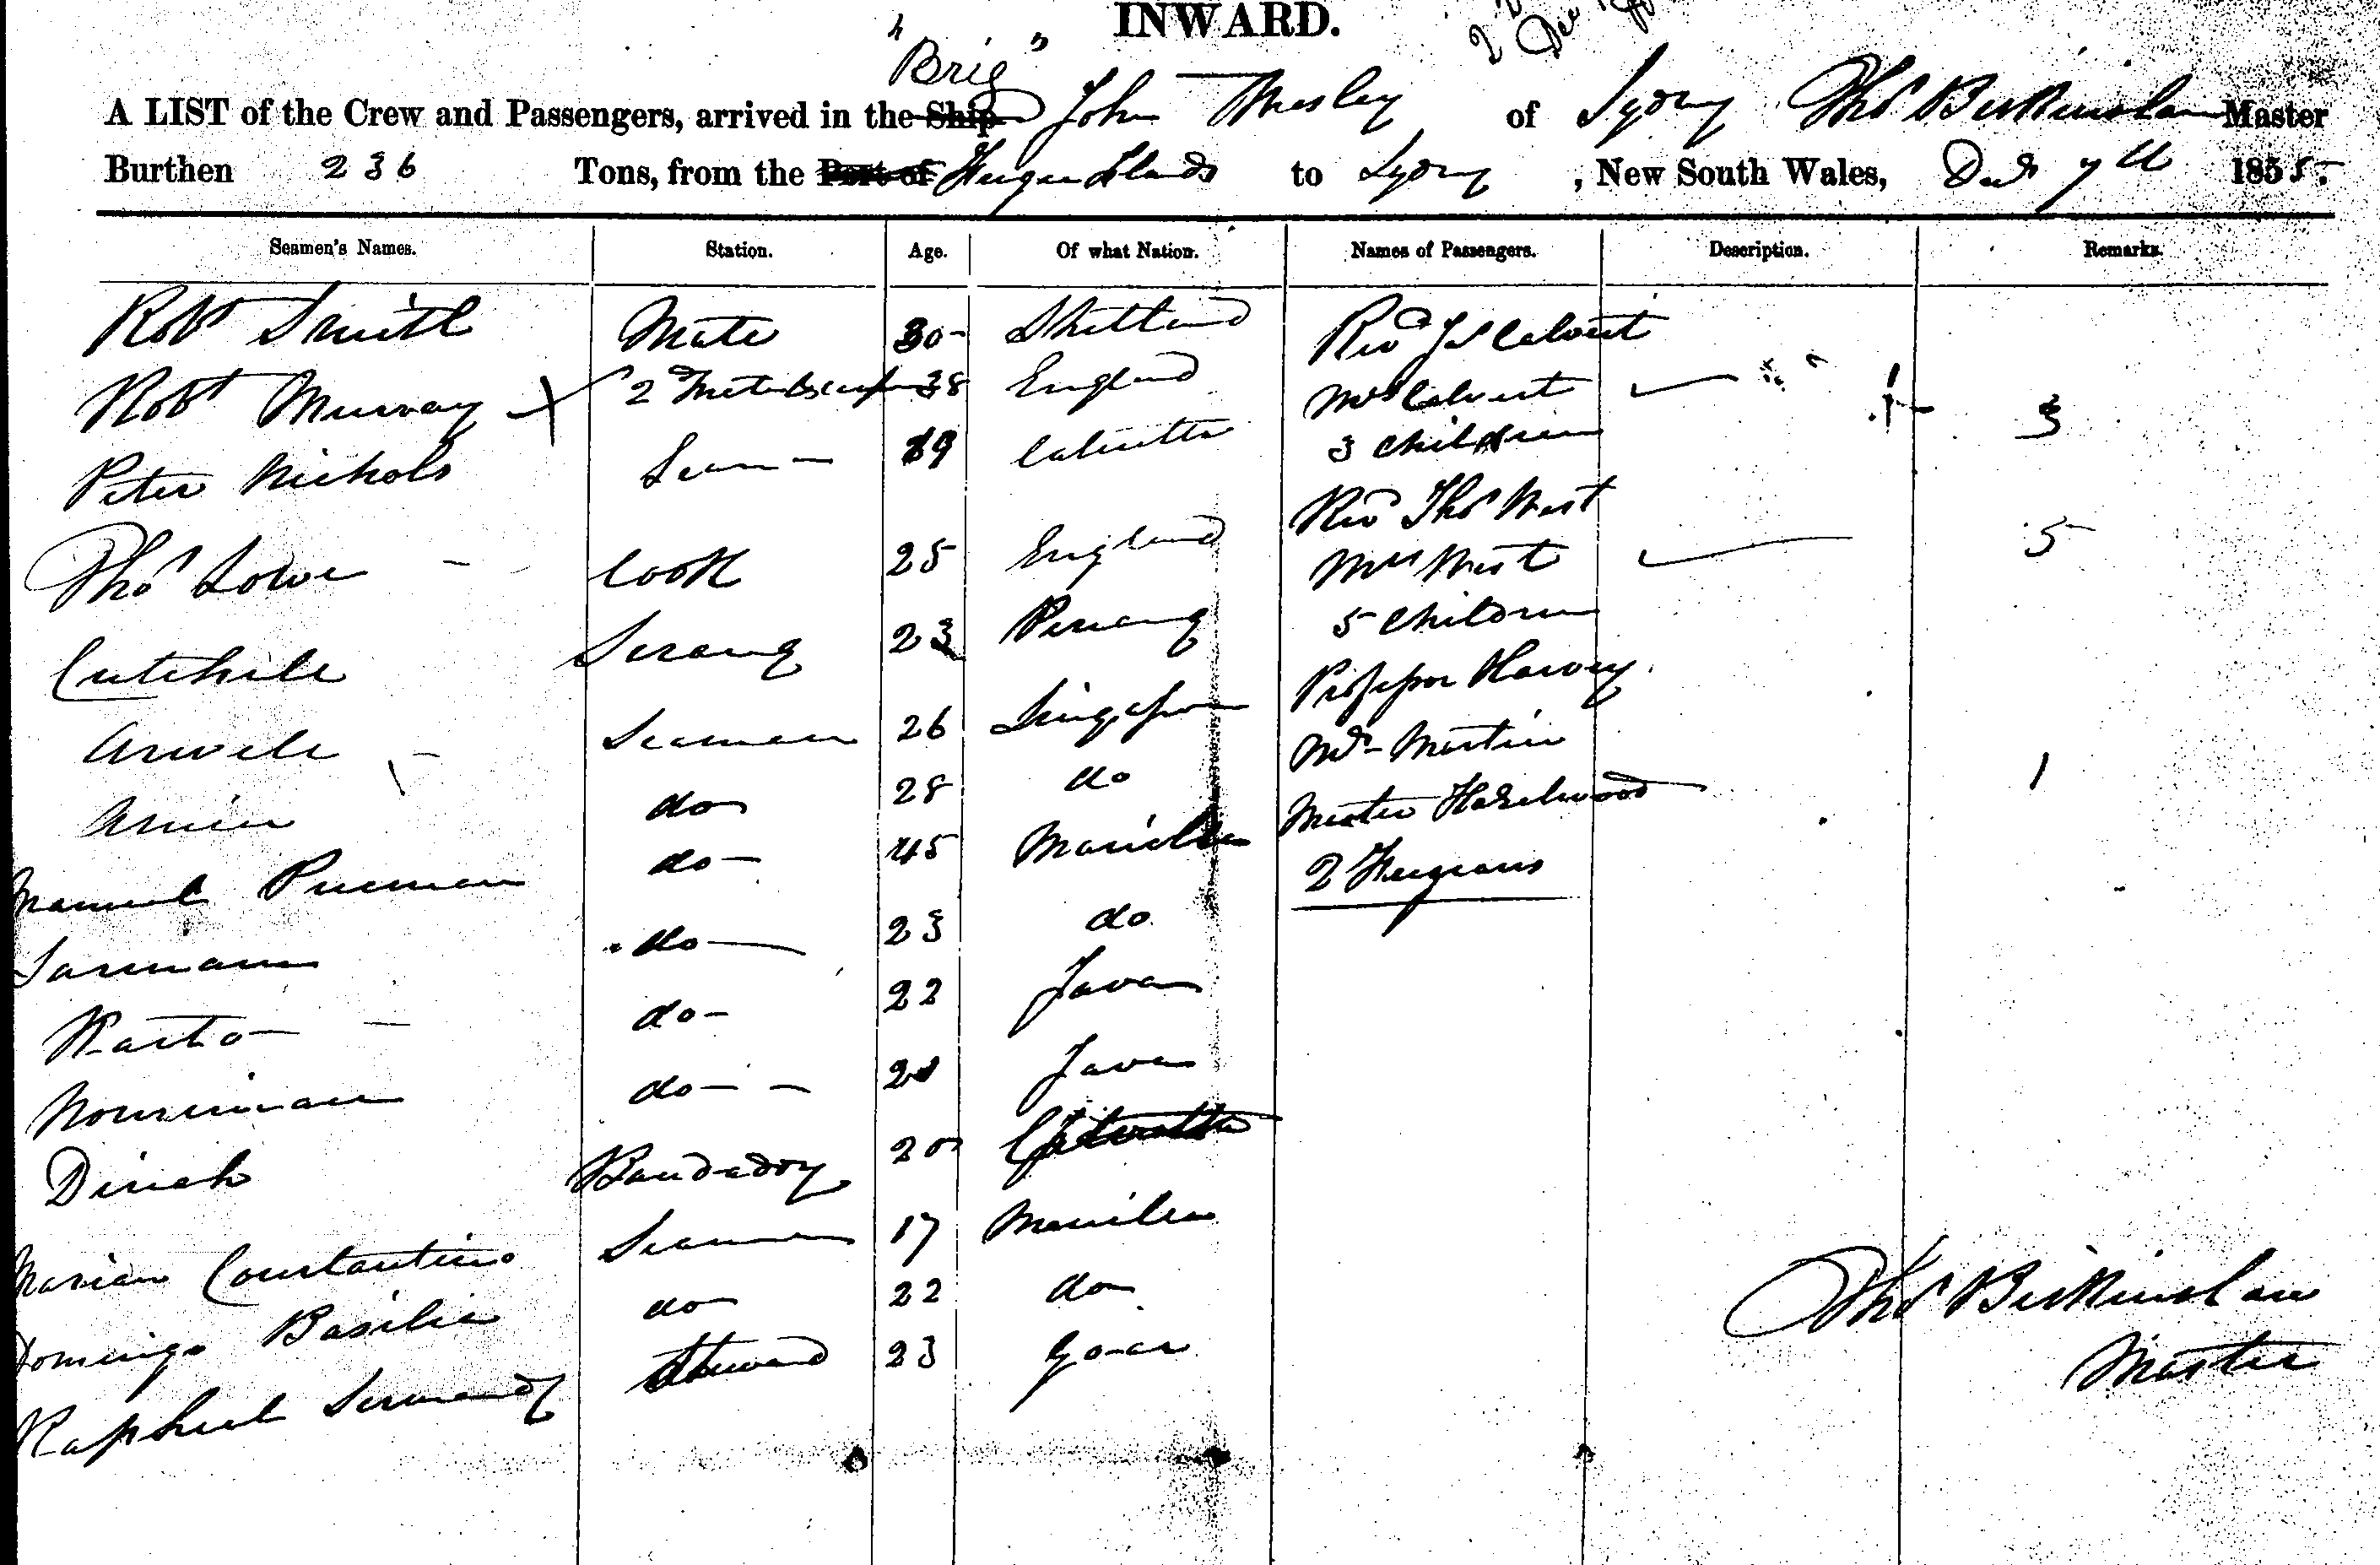 INWARD.
" Brig "
A LIST of the Crew and Passengers, arrived in the Ship John Wesley of Sydney Thos Birkinshaw Master
Burthen 236 Tons, from the Port of Islands to Sydney, New South Wales, Decr 7th 1855.
Seamen's Names. Station. Age. Of what Nation. Names of Passengers. Description. Remarks.
Robt Smith Mate 30 Shetland Revd Jas Calvert
Robt Murray 2d Mate 38 England Mrs Calvert 3
Peter Nichols Seaman Calcutta 3 Children
Thos Lowe Cook 25 England Revd Thos West
Mrs West 5
Serang 23 Penang 5 Children
Seaman 26 Singapore Professor Harvey
do 28 do Mr Martin
Manuel do 45 Manilla Master Hazelwood 1
do 23 do 2
Karto do 22 Java
do Java
Dinah 20
Marian Constantino Seaman 17 Manilla
Domingo Basilio do 22 do
Raphael Steward 23 Goa
Thos Birkinshaw
Master